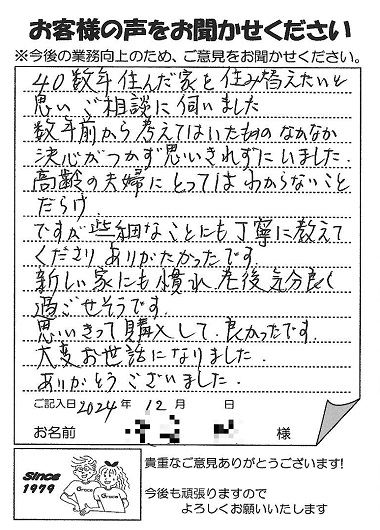 お客様の声をお聞かせください
※今後の業務向上のため、ご意見をお聞かせください。
40数年住んだ家を住み替えたいと
思いご相談に伺いました
数年前から考えてはいたもののなかなか
決心がつかず思いきれずにいました.
高齢の夫婦にとってはわからないこと
だらけ.
ですが些細なことにも丁寧に教えて
くださりありがたかったです.
新しい家にも慣れ老後気分良く
過ごせそうです.
思いきって購入して.良かったです.
大変お世話になりました.
ありがとうございました.
ご記入日 2024 年 12 月 日
お名前 様
Since
1979
Grace
Grace
貴重なご意見ありがとうございます!
今後も頑張りますので
よろしくお願いいたします